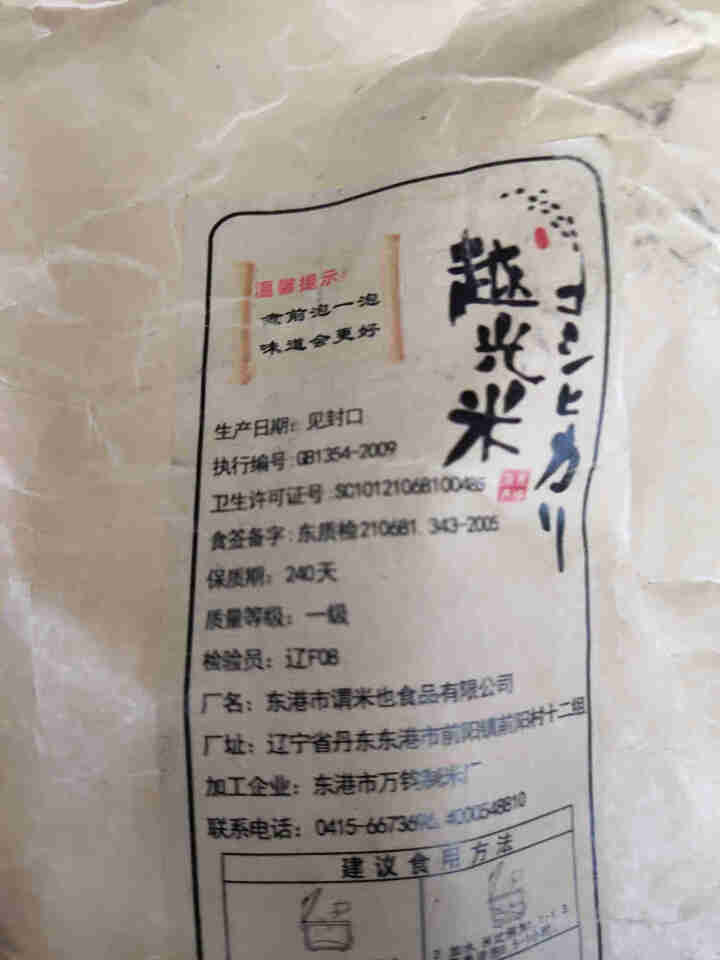 越光米
コシヒカリ
温馨提示:
煮前泡一泡
味道会更好
生产日期: 见封口
执行编号:GB1354-2009
卫生许可证号:SC10121068100485
食签备字:东质检210681.343-2005
保质期: 240天
质量等级: 一级
检验员: 辽F08
厂名: 东港市谓米也食品有限公司
厂址: 辽宁省丹东东港市前阳镇前阳村十二组
加工企业: 东港市万钧制米厂
联系电话: 0415-6673696,4000548810
建议食用方法